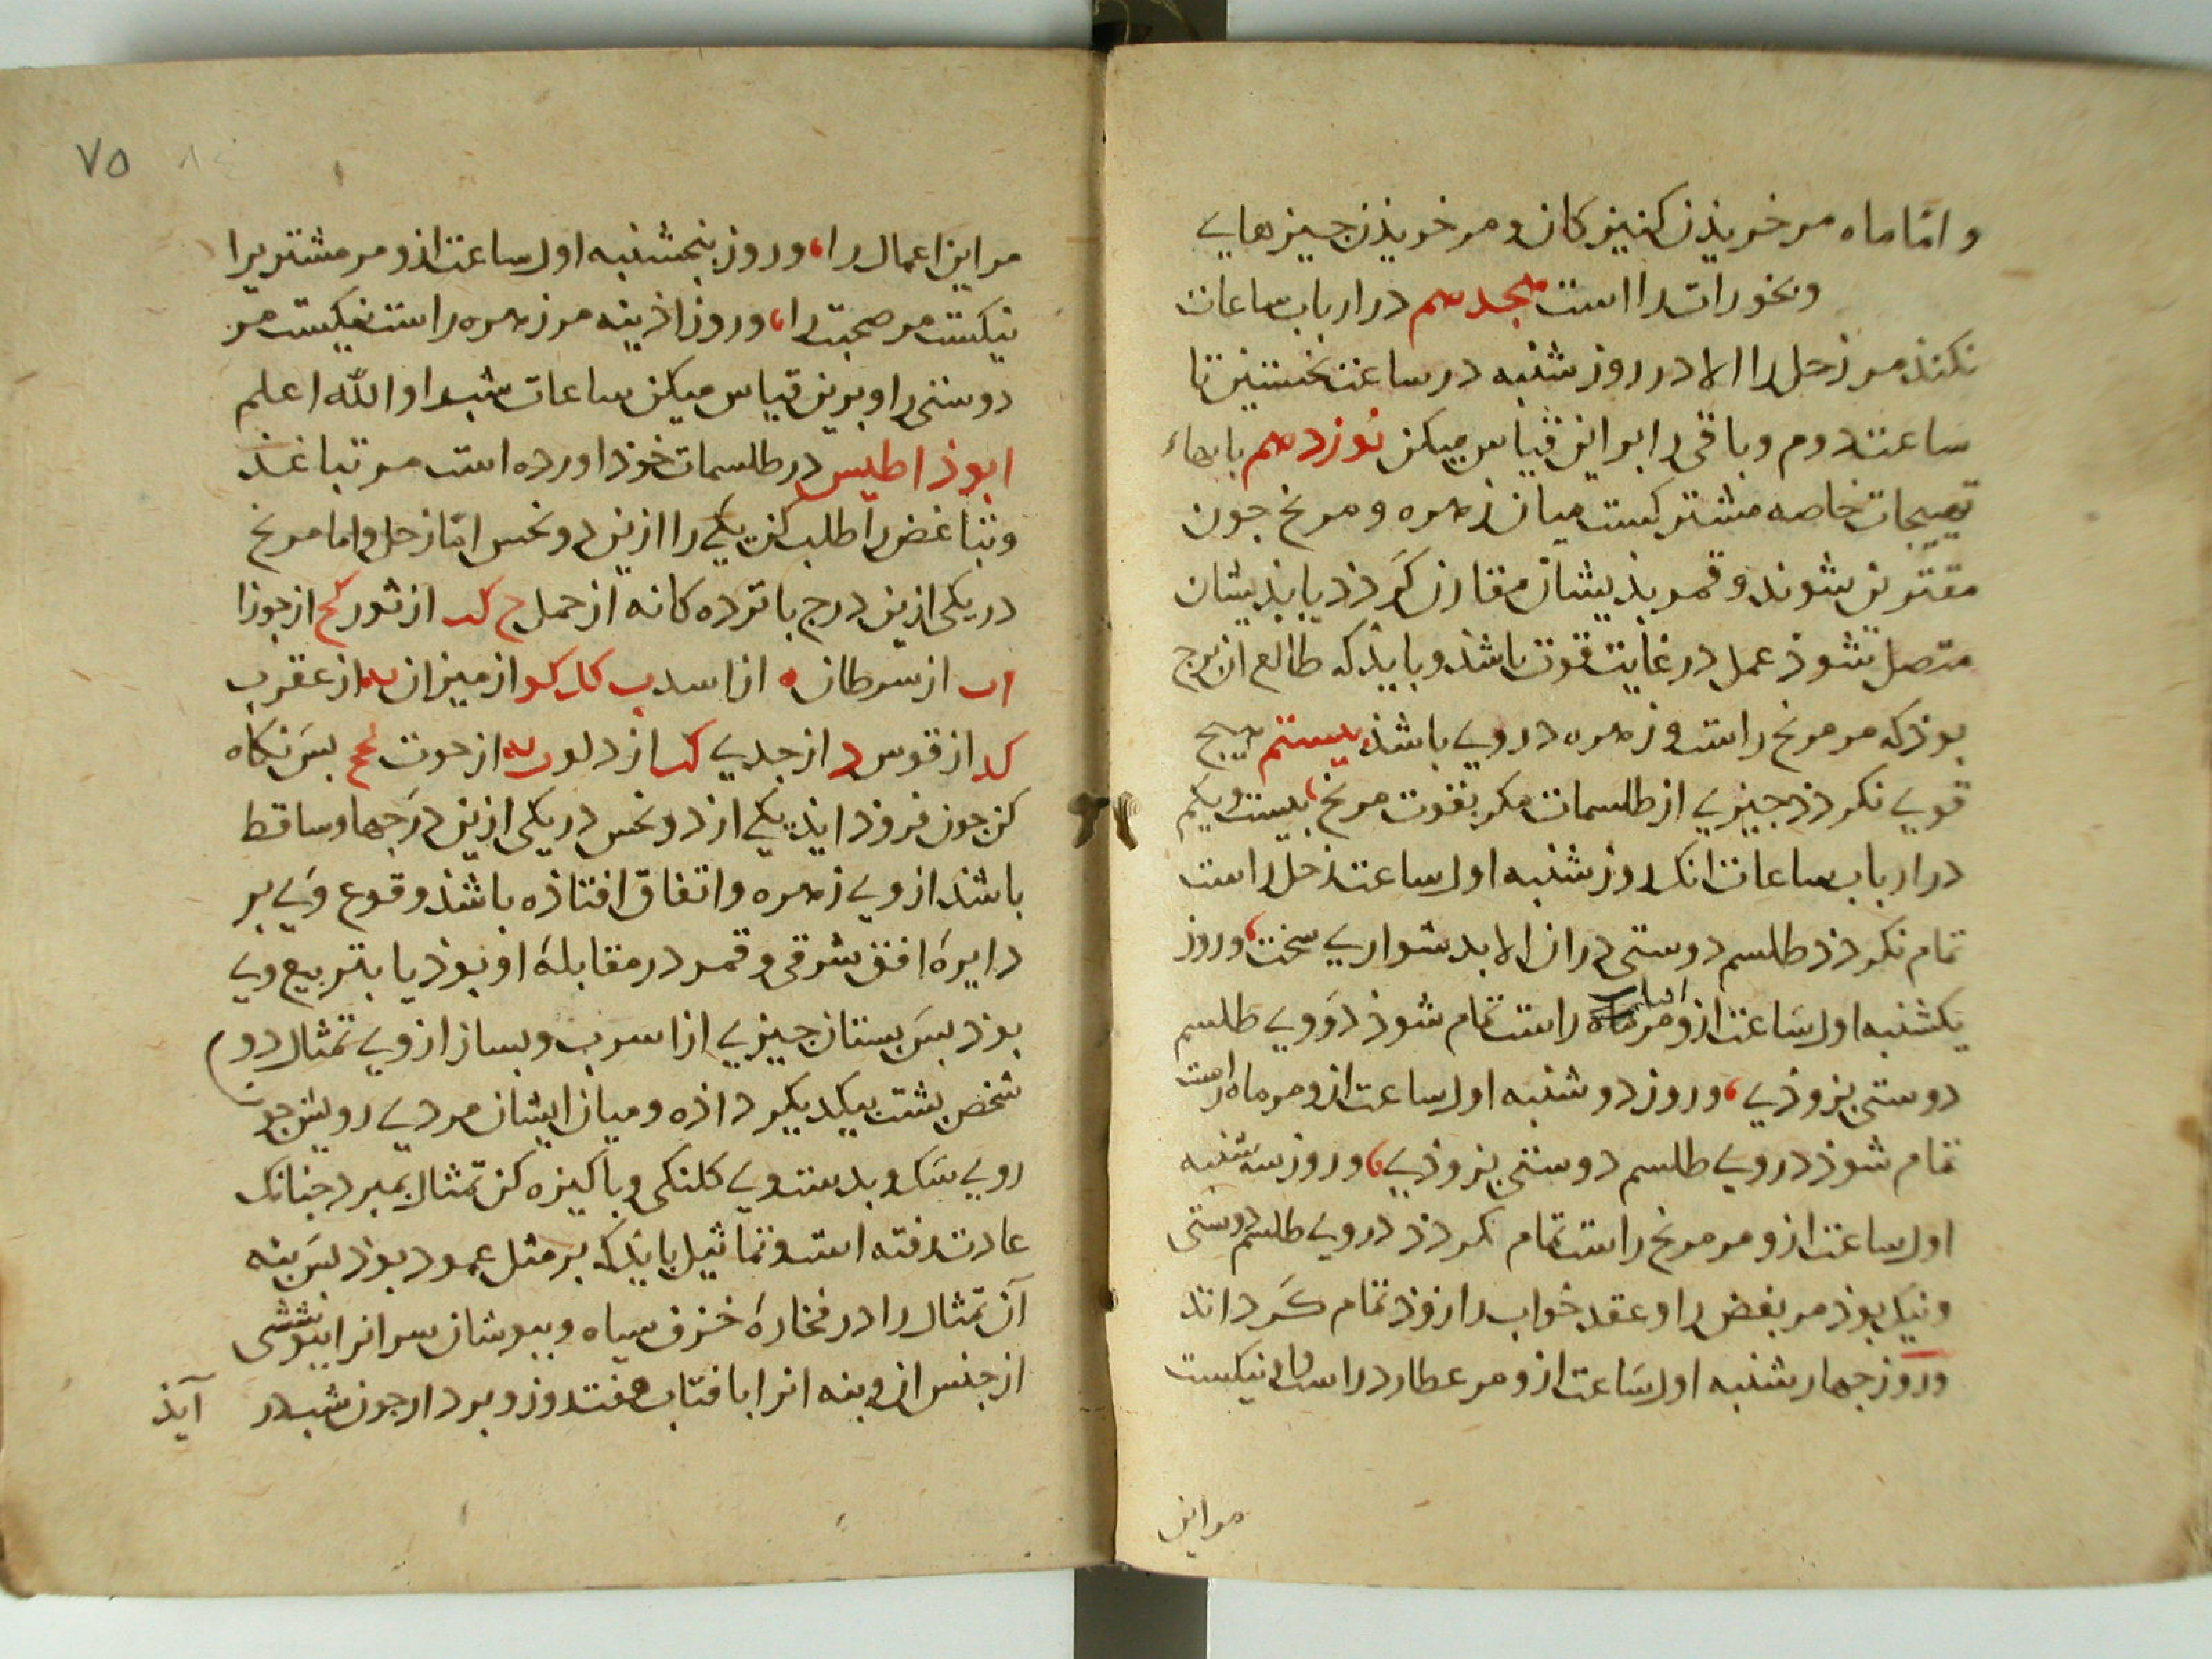 و امّا ماه مر خریذن کنیزکان و مر خریذن جیزهایی
وبخورات را است هجدهم در ارباب ساعات
نکنذ مر زحل را الا در روز شنبه در ساعت نخستین تا
ساعت دوم و باقی را بر این قیاس میکن نوزدهم بابهاء
تهییجات خاصه مشترکست میان زهره و مریخ جون
مقترن شوند و قمر بذیشان مقارن کردد یا بذیشان
متصل شوذ عمل در غایت قوت باشذ و بایذ که طالع ان برج
بوذ که مر مریخ راست و زهره در وی باشذ بیستم هیج
قوی نکردذ جیزی از طلسمات مکر بقوت مریخ بیست و یکم
در ارباب ساعات انک روز شنبه اول ساعت زحل راست
تمام نکردذ طلسم دوستی در ان الا بدشواری سخت وروز
یکشنبه اول ساعت ازو مر افتاب راست تمام شوذ در وی طلسم
دوستی بزوذی وروز دوشنبه اول ساعت ازو مر ماه راست
تمام شوذ در وی طلسم دوستی بزوذی وروز سه شنبه
اول ساعت ازو مر مریخ راست تمام نکردذ در وی طلسم دوستی
ونیک بوذ مر بغض را و عقد خواب را زوذ تمام کرداند
وروز جهارشنبه اول ساعت ازو مر عطارد راست نیکست
مر این
٧٥
مر این اعمال را وروز بنجشنبه اول ساعت ازو مر مشتری را
نیکست مر صحبت را وروز اذینه مر زهره راست نیکست مر
دوستی را و برین قیاس میکن ساعات شب را والله اعلم
ابوذاطیس در طلسمات خوذ اورده است مر تباغذ
وتباغض را طلب کن یکی را ازین دو نحس امّا زحل و اما مریخ
در یکی ازین درج باترده کانه از حمل ح کد از ثور کح از جوزا
اب از سرطان ه از اسد ب کد کو از میزان یه از عقرب
کد از قوس د از جدی کد از دلو یه از حوت کح بس نکاه
کن جون فروذ ایذ یکی از دو نحس در یکی ازین درجها و ساقط
باشذ از وی زهره و اتفاق افتاذه باشذ وقوع وی بر
دایرهٔ افق شرقی و قمر در مقابلهٔ او بوذ یا بتربیع وی
بوذ بس بستان جیزی از اسرب و بساز از وی تمثال دو
شخص بشت بیکدیکر داذه و میان ایشان مردی رویش جون
روی سک و بدست وی کلنکی و باکیزه کن تمثال بمبرد جنانک
عادت رفته است و تماثیل بایذ که بر مثل عمود بوذ بس بنه
آن تمثال را در فخارهٔ خزف سیاه و ببوشان سر انرا ببوششی
از جنس ان و بنه انرا با فتاب هفت روز و بردار جون شب در
آیذ